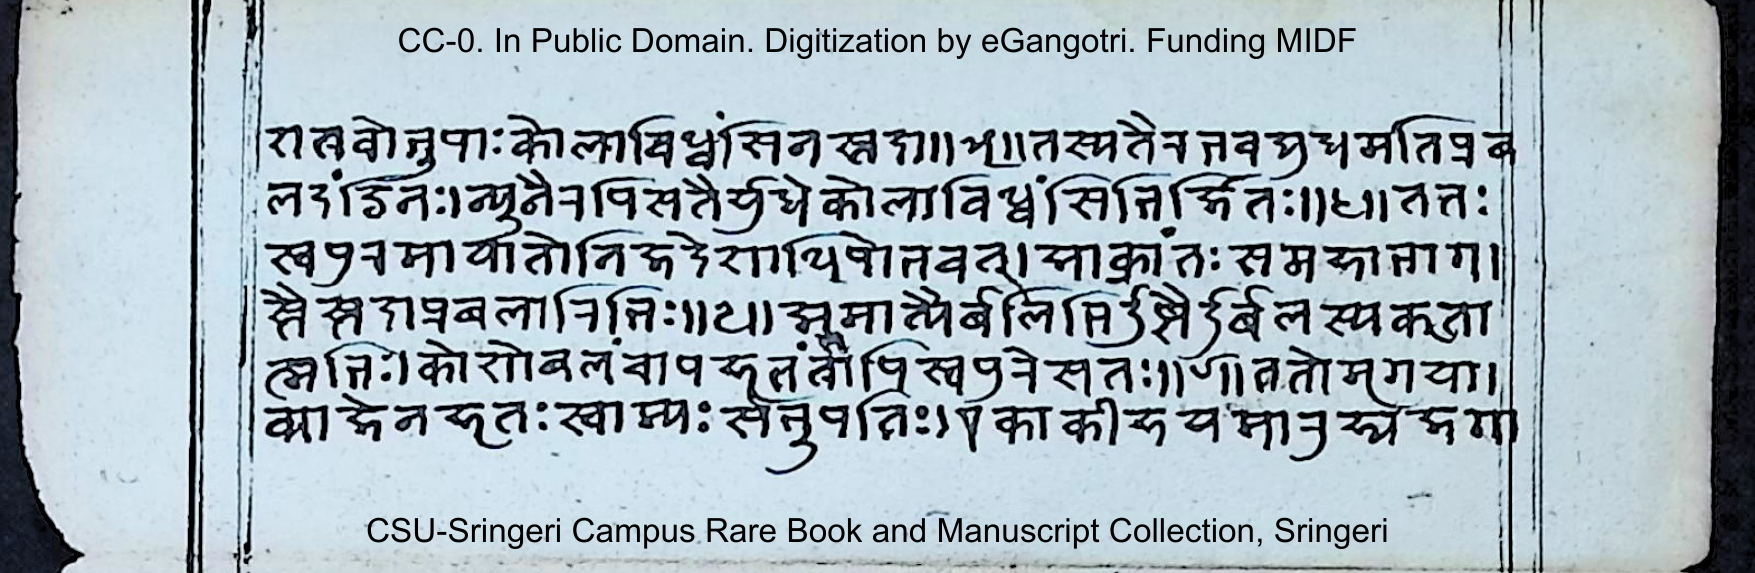 CC-0. In Public Domain. Digitization by eGangotri. Funding MIDF
रात्रवोनुपाःकोलाविध्वंसिनस्तदा॥५॥तस्यतैरभवद्युधमतिप्रब
लदंडिनः।न्युनैरपिसतैर्युधेकोलाविध्वंसिभिर्जितः॥६॥ततः
स्वपुरमायातोनिजदेशाधिपोभवत्।आक्रांतःसमहाभाग।
स्तैस्तदाप्रबलारिभिः॥७॥अमात्यैर्बलिभिर्दुष्टैर्दुर्बलस्यदुरा
त्मभिः।कोशोबलंचापहृतंतत्रापिस्वपुरेसतः॥८॥ततोमृगया।
व्याजेनहृतःस्वाम्यःसनुपतिः।एकाकीहयमारुह्यजगा
CSU-Sringeri Campus Rare Book and Manuscript Collection, Sringeri